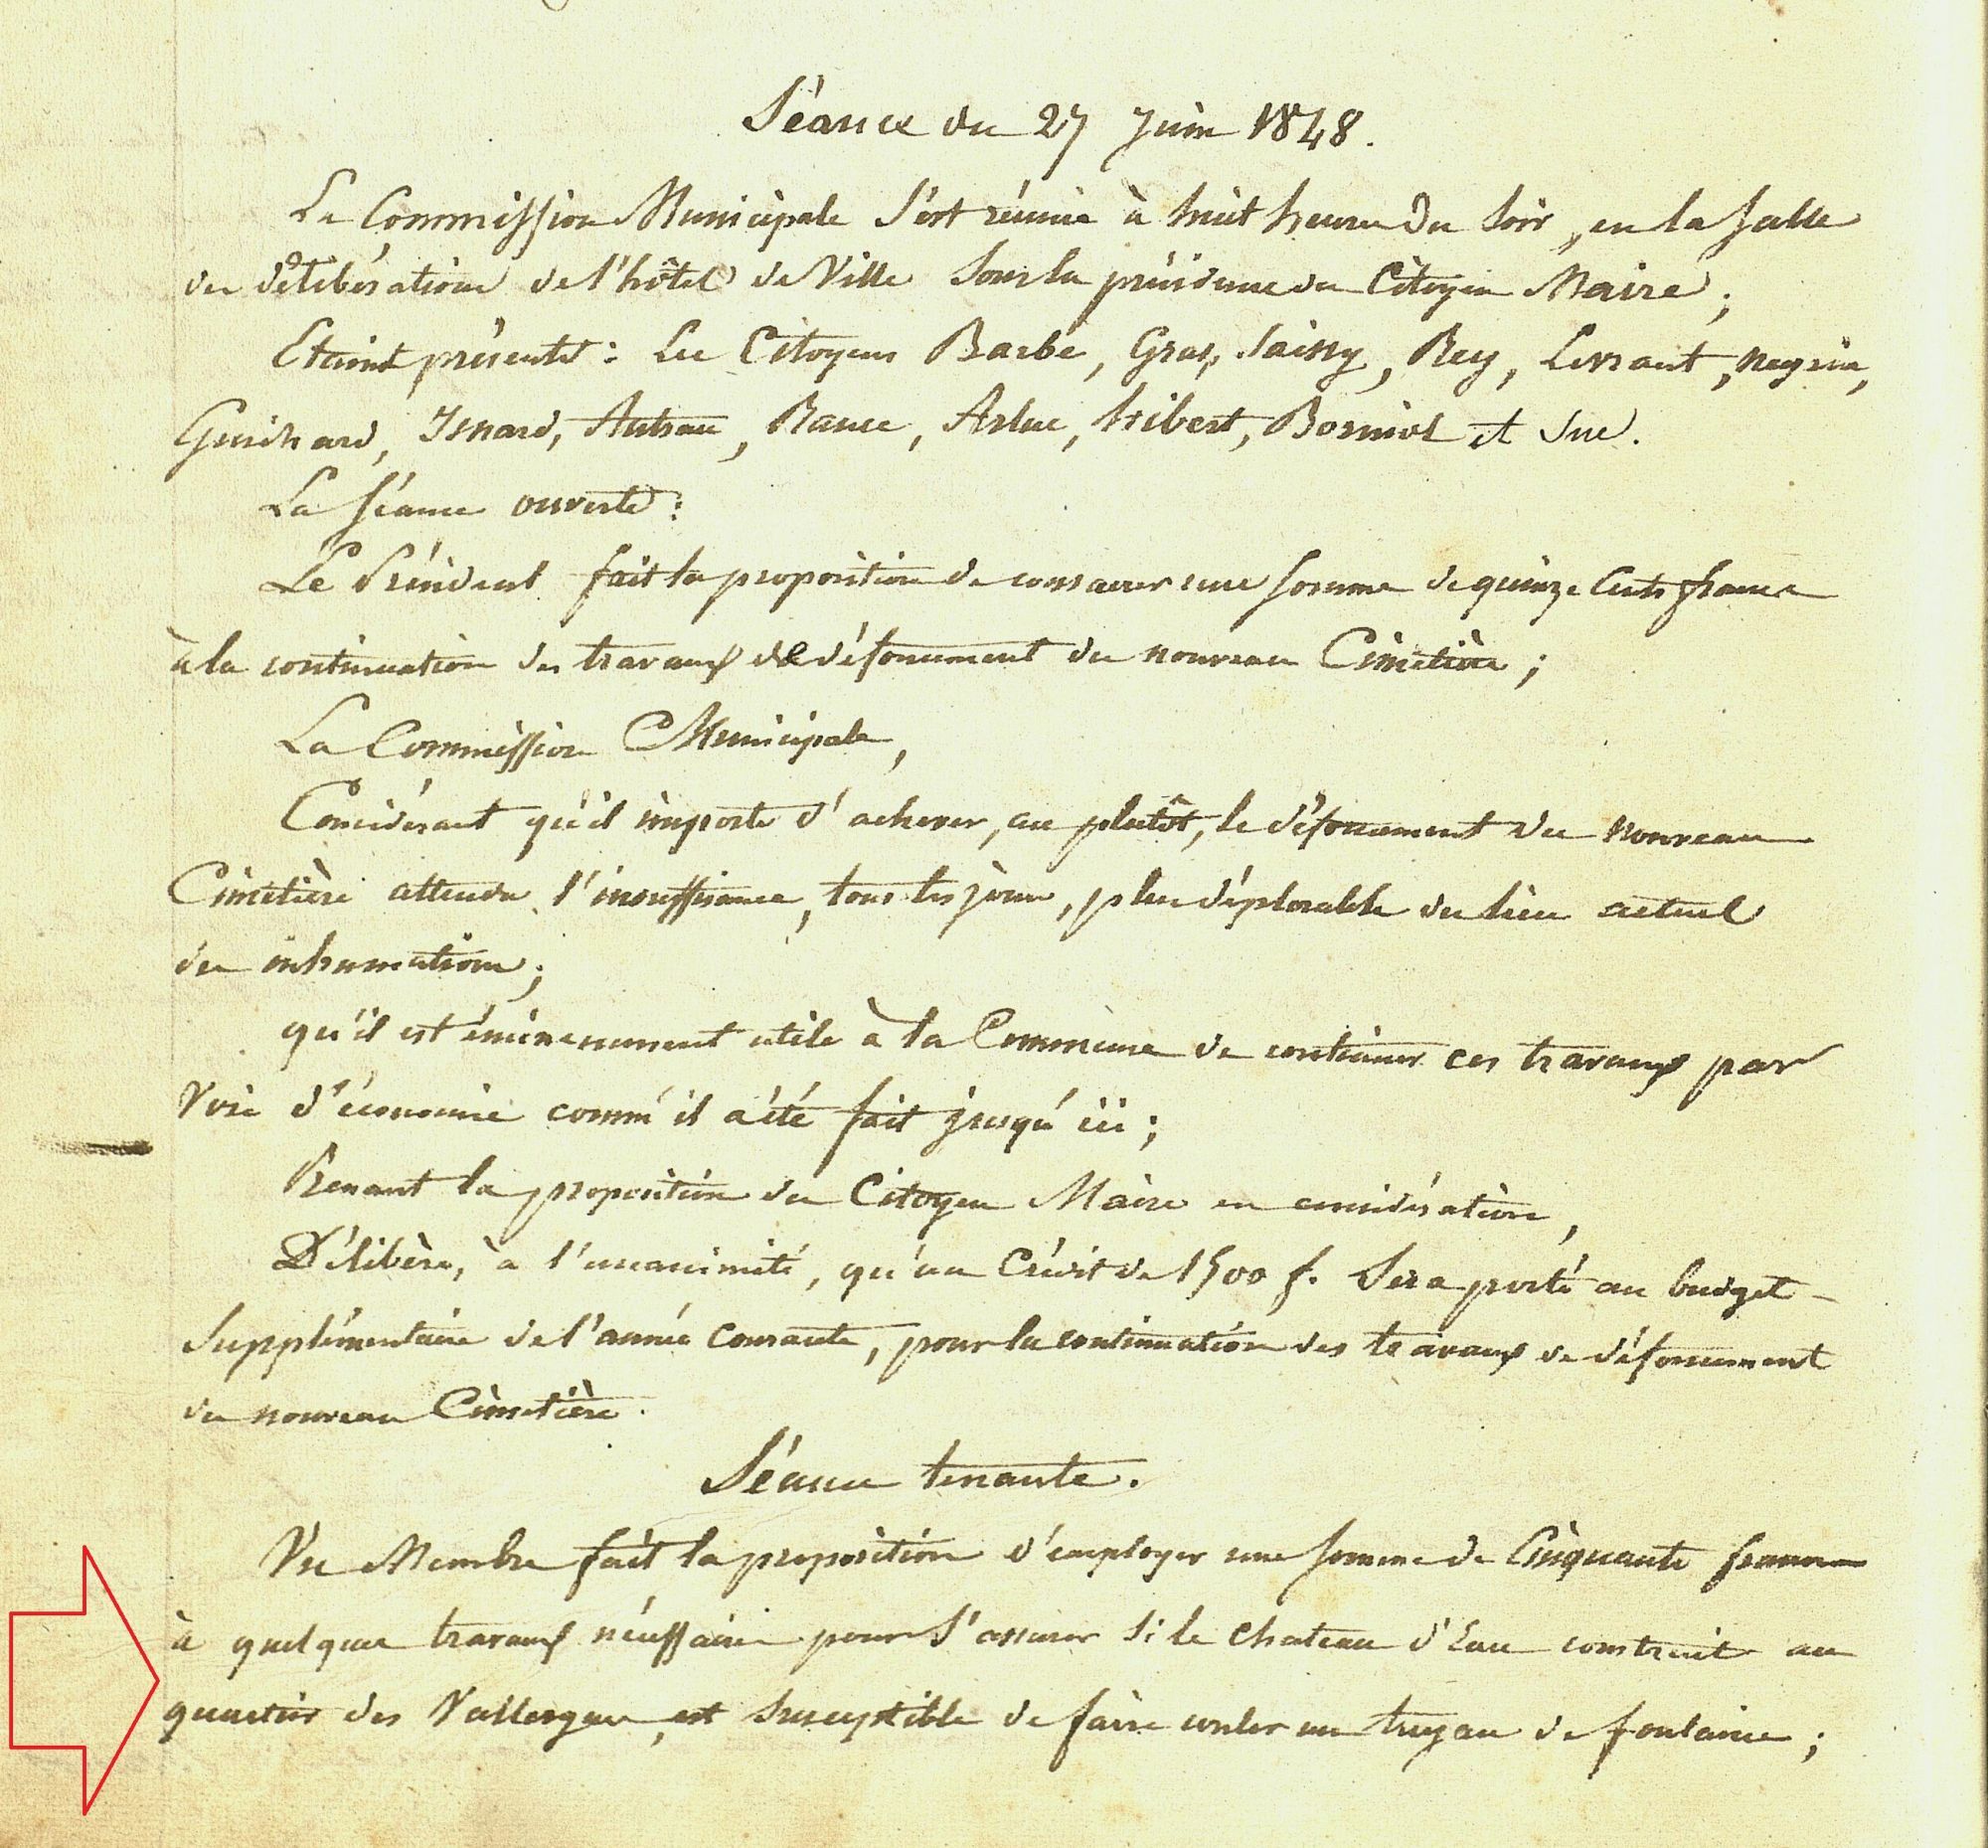 Séance du 27 Juin 1848.
La Commission Municipale s'est réunie à huit heures du soir, en la salle
des délibérations de l'hôtel de Ville sous la présidence du Citoyen Maire;
Etaient présents: Les Citoyens Barbe, Gras, Saissy, Rey, Negrin,
Guichard, Isnard, Autran, Rance, Arluc, Hibert, Borniol et Sue.
La séance ouverte:
Le Président fait la proposition de consacrer une somme de quinze Cents francs
à la continuation des travaux de défoncement du nouveau Cimetière;
La Commission Municipale,
Considérant qu'il importe d'achever, au plutôt, le défoncement du nouveau
Cimetière attendu l'insuffisance, tous les jours, plus déplorable du lieu actuel
des inhumations;
qu'il est éminemment utile à la Commune de continuer ces travaux par
Voie d'économie comm'il a été fait jusqu'ici;
Prenant la proposition du Citoyen Maire en considération,
Délibère, à l'unanimité, qu'un Crédit de 1500 f. Sera porté au budget
Supplémentaire de l'année Courante, pour la continuation des travaux de défoncement
du nouveau Cimetière.
Séance tenante.
Un Membre fait la proposition d'employer une somme de Cinquante francs
à quelques travaux nécessaires pour s'assurer si le chateau d'Eau construit au
quartier des Vallergues, est susceptible de faire couler un tuyau de fontaine;